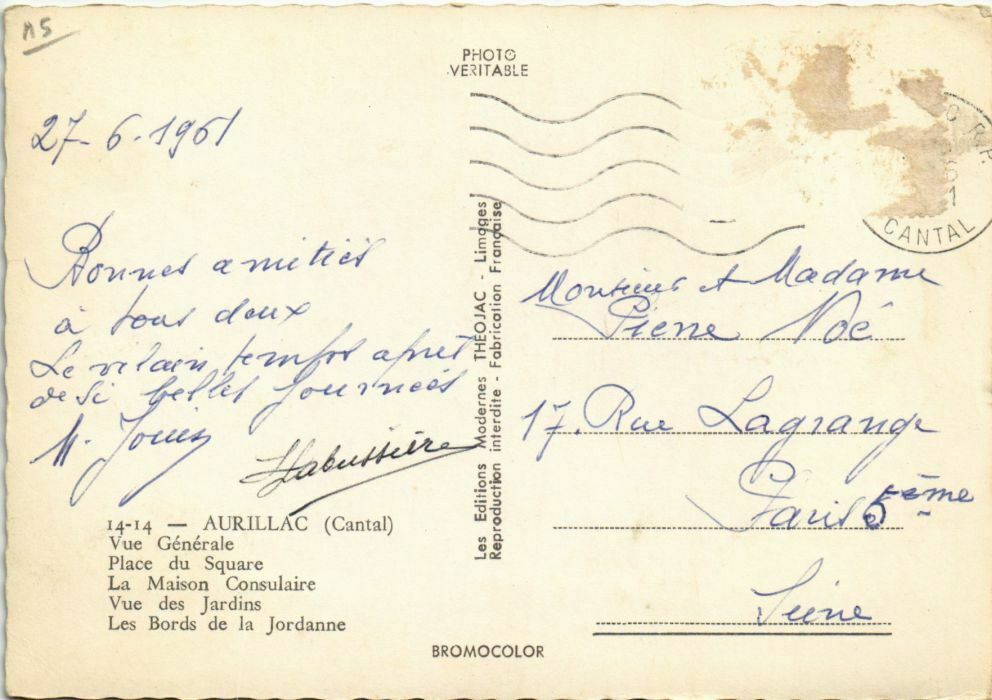 15
PHOTO
VERITABLE
27-6-1961
Bonnes amitiés
à tous deux
Le vilain temps après
de si belles journées
M. Jouin
Labussière
14-14 — AURILLAC (Cantal)
Vue Générale
Place du Square
La Maison Consulaire
Vue des Jardins
Les Bords de la Jordanne
Les Editions Modernes THEOJAC - Limoges
Reproduction interdite - Fabrication Française
BROMOCOLOR
CANTAL
Monsieur et Madame
Pierre Noé
17. Rue Lagrange
Paris 5ème
Seine